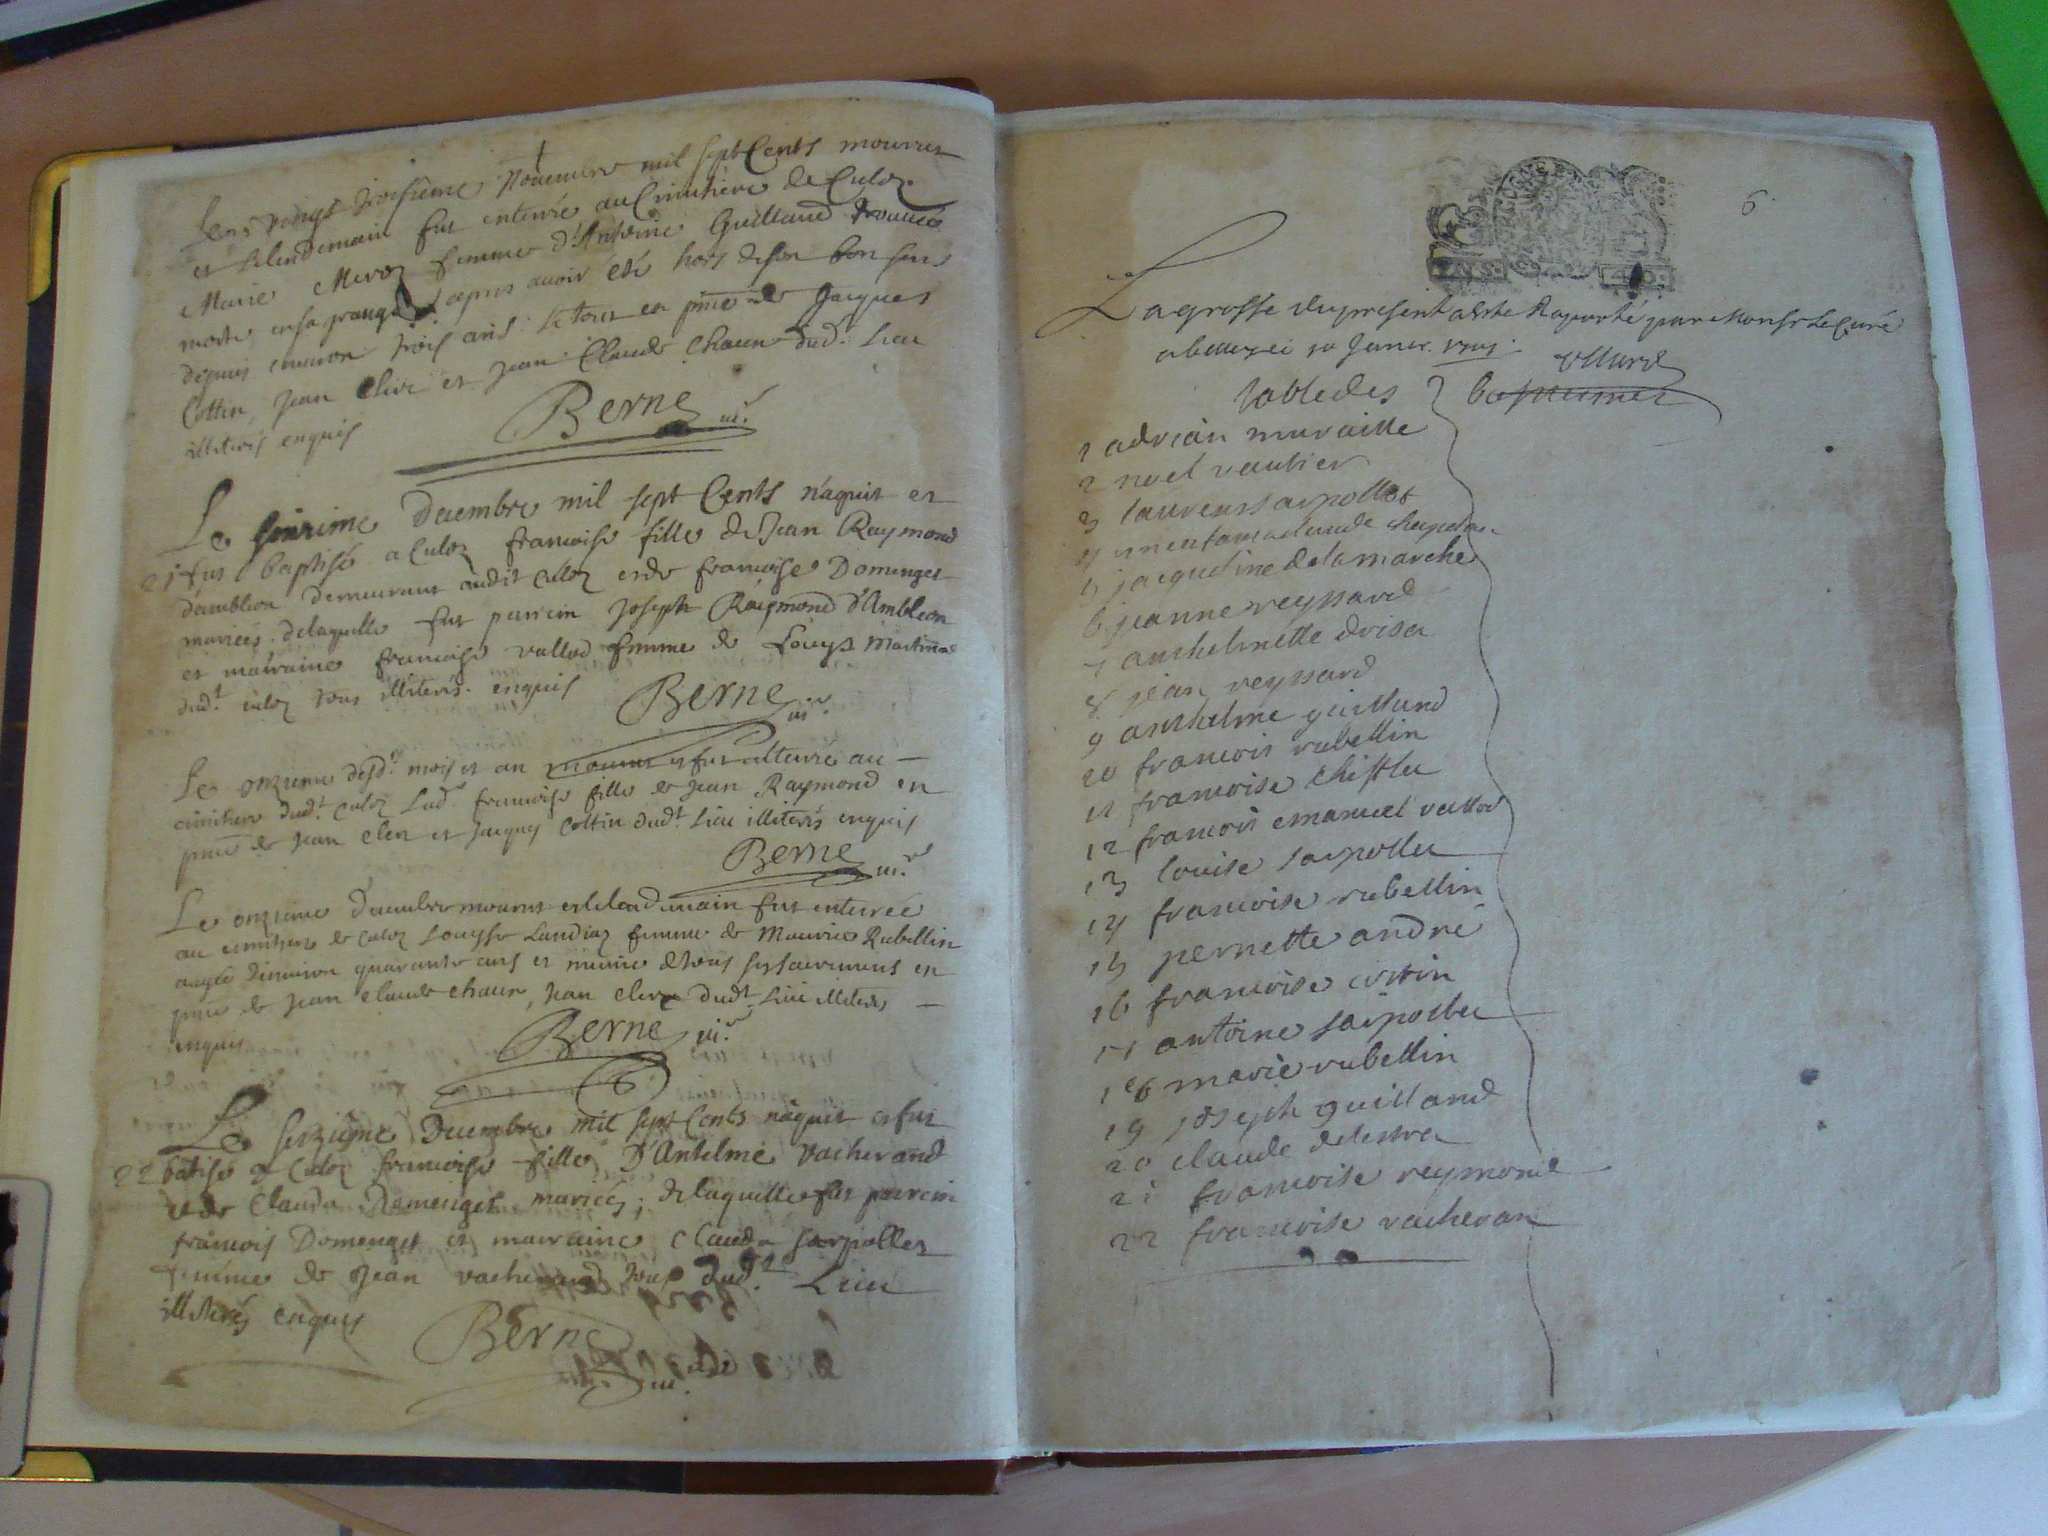 Le vingt troisième Novembre mil sept Cents mourut
et lelendemain fut enterré au Cimitiere de Culoz
Marie Meroz femme d'Antoine Guilland trouvée
morte en sa grange apres avoir été hors de son bon sens
depuis environ trois ans. le tout en pnce de Jacques
Cottin, Jean Clerc et Jean Claude Chaun dud. Lieu
illiterés enquis
Berne
Le Decembre mil sept Cents naquit et
21 fut baptisé a Culoz francoise fille de Jean Raymond
d'ambleon demeurant audit Culoz et de francoise Domenget
mariés. de laquelle fut parrin Joseph Raymond d'Ambleon
et mairaine francoise vallod femme de Louys Martinod
dud.t culoz tous illiterés enquis
Berne
Le onzieme desd. mois et an mourut et fut enterré au
cimitiere dud.t Culoz Lad. francoise fille de Jean Raymond en
pnce de Jean Clerc et Jacques Cottin dud.t Lieu illiterés enquis
Berne
Le onzieme Decembre mourut et lelendemain fut enterrée
au cimitiere de Culoz Louyse Landiaz femme de Maurice Rubellin
aagée d'environ quarante ans et munie de tous ses sacremens en
pnce de Jean Claude Chaun, Jean Clerc dud.t Lieu illiterés
enquis
Berne
Le seizième Decembre mil sept Cents naquit et fut
22 batisé a Culoz francoise fille D'Antelme Vacherand
et de Clauda Domenget mariés; de laquelle fut parrin
francois Domenget et mairaine Clauda sarpollet
femme de Jean vacherand tous dud.t Lieu
illiterés enquis
Berne
6
La grosse du present a este Raporté par Monsr le Curé
a belley ce 10 Janvr. 1701.
Table des baptemes
1 adrian muraille
2 noel vautier
3 laurens sarpollet
4 claude
5 jacqueline delamarche
6 jeanne reyssard
7 anthelmette
8 jean reyssard
9 anthelme guilland
10 francois rubellin
11 francoise
12 francois emanuel vallod
13 louise sarpollet
14 francoise rubellin
15 pernette andre
16 francoise cottin
17 antoine sarpollet
18 marie rubellin
19 joseph guilland
20 claude
21 francoise reymond
22 francoise vacheran